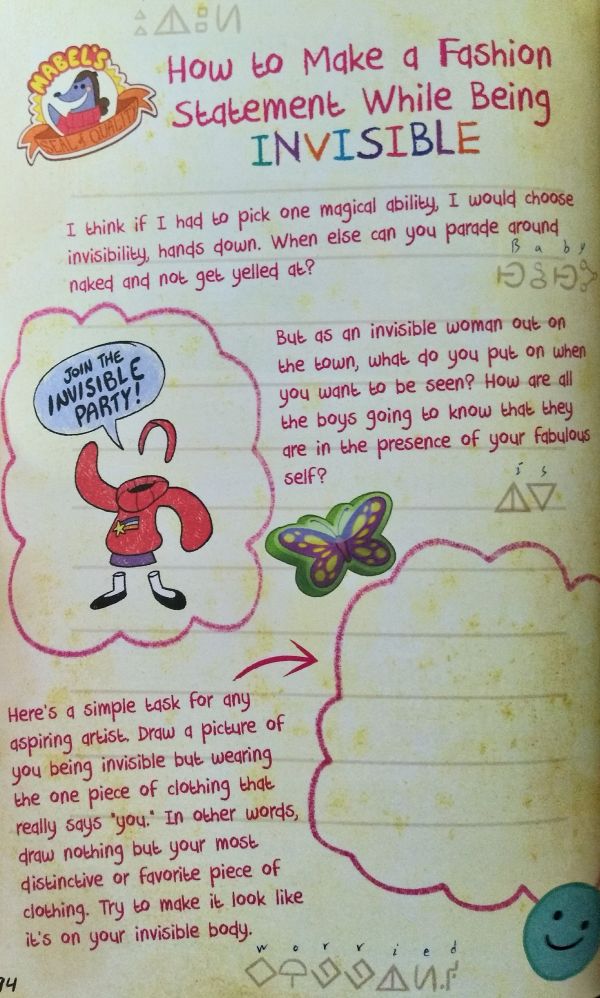 MABEL'S
SEAL of QUALITY
How to Make a Fashion
Statement While Being
INVISIBLE
I think if I had to pick one magical ability, I would choose
invisibility, hands down. When else can you parade around
naked and not get yelled at?
B a b y
JOIN THE
INVISIBLE
PARTY!
But as an invisible woman out on
the town, what do you put on when
you want to be seen? How are all
the boys going to know that they
are in the presence of your fabulous
self?
i s
Here's a simple task for any
aspiring artist. Draw a picture of
you being invisible but wearing
the one piece of clothing that
really says "you." In other words,
draw nothing but your most
distinctive or favorite piece of
clothing. Try to make it look like
it's on your invisible body.
w o r r i e d
94